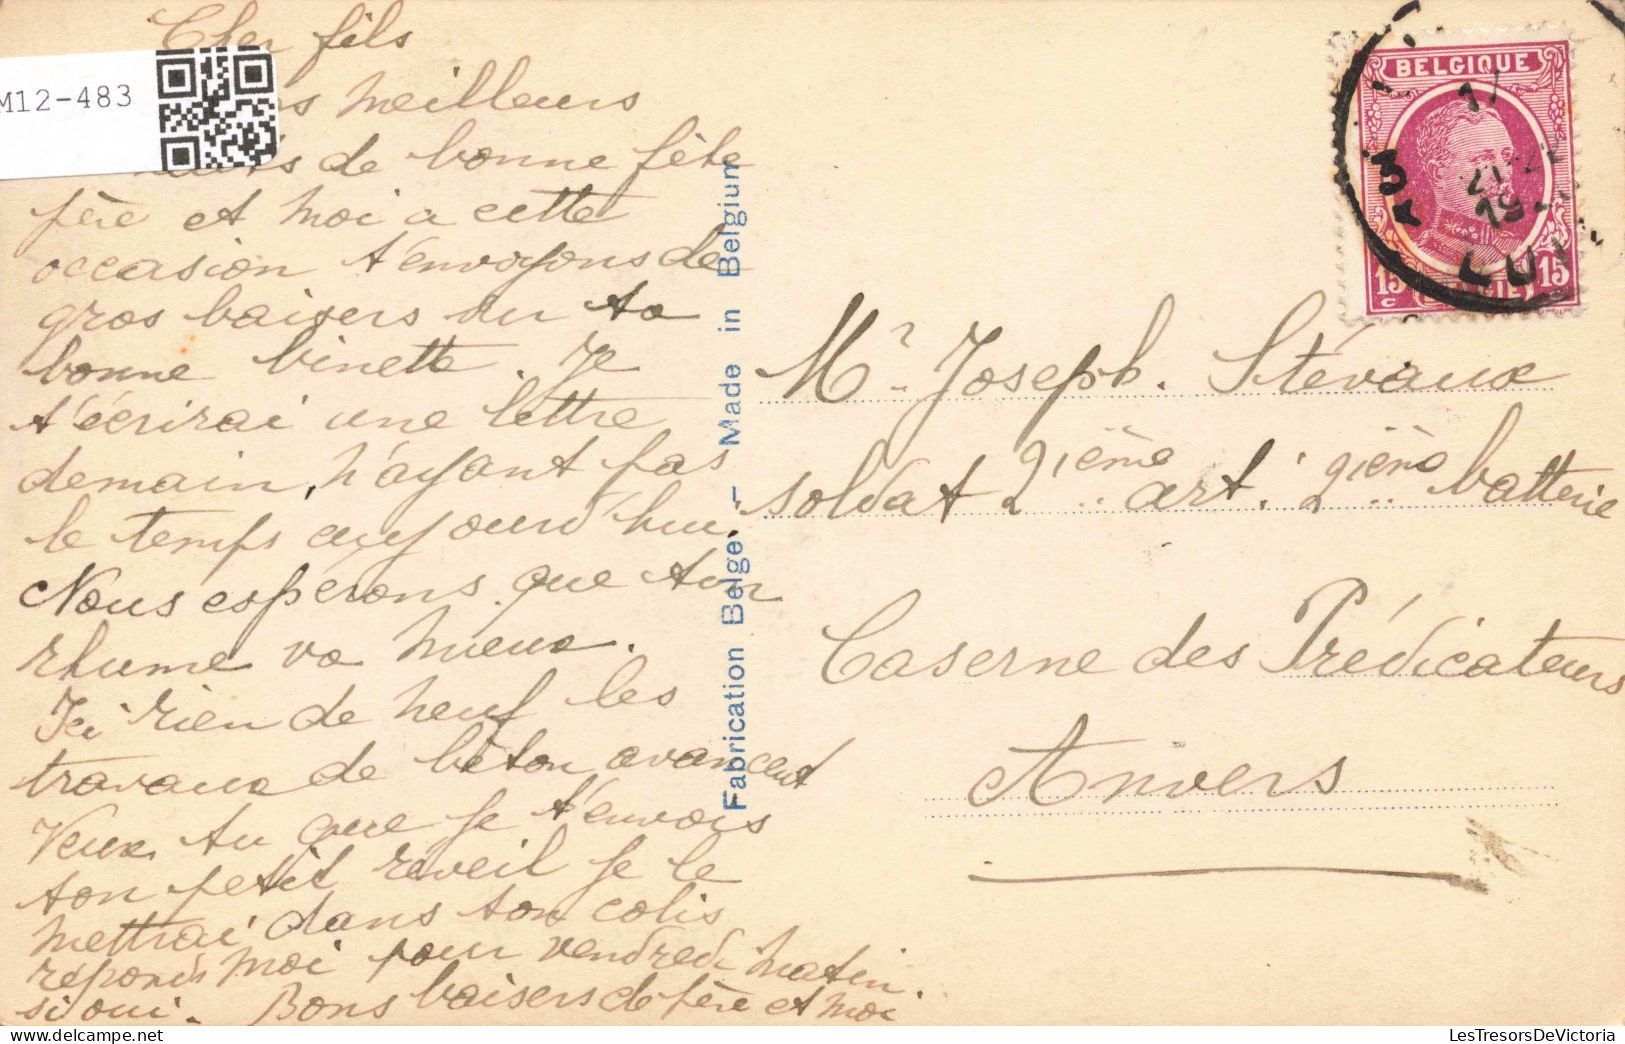 Cher fils
M12-483
meilleurs
de bonne fête
père et moi a cette
occasion t'envoyons de
gros baisers sur ta
bonne binette. Je
t'écrirai une lettre
demain, n'ayant pas
le temps aujourd'hui.
Nous espérons que ton
rhume va mieux.
Ici rien de neuf les
travaux de béton avancent
Veux tu que je t'envois
ton petit reveil je le
mettrai dans ton colis
réponds moi pour vendredi matin
si oui. Bons baisers de père et moi
Fabrication Belge – Made in Belgium
BELGIQUE
15 15
c BELGIE
Mr. Joseph. Stévaux
soldat 2ième art. 2ième batterie
Caserne des Prédicateurs
Anvers
LesTresorsDeVictoria